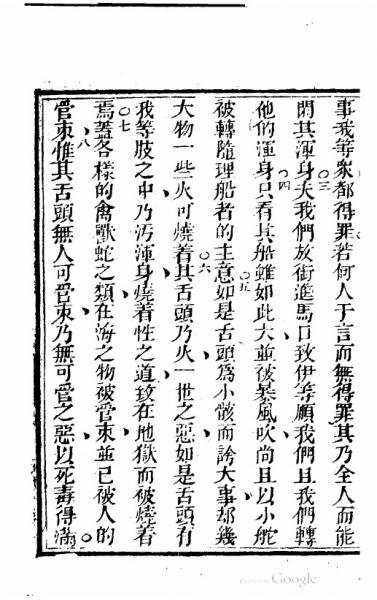 事我等衆都得罪若何人于言而無得罪其乃全人而能
閑其渾身○三夫我們放銜進馬口致伊等順我們且我們轉
他的渾身○四只看其船雖如此大並被暴風吹尚且以小舵
被轉隨理船者的主意○五如是舌頭爲小骸而誇大事却幾
大物一些火可燒着○六其舌頭乃火一世之惡如是舌頭有
我等肢之中乃污渾身燒着性之道致在地獄而被燒着
焉○七蓋各樣的禽獸蛇之類在海之物被管束並已被人的
管束○八惟其舌頭無人可管束乃無可管之惡以死毒得滿○
Google